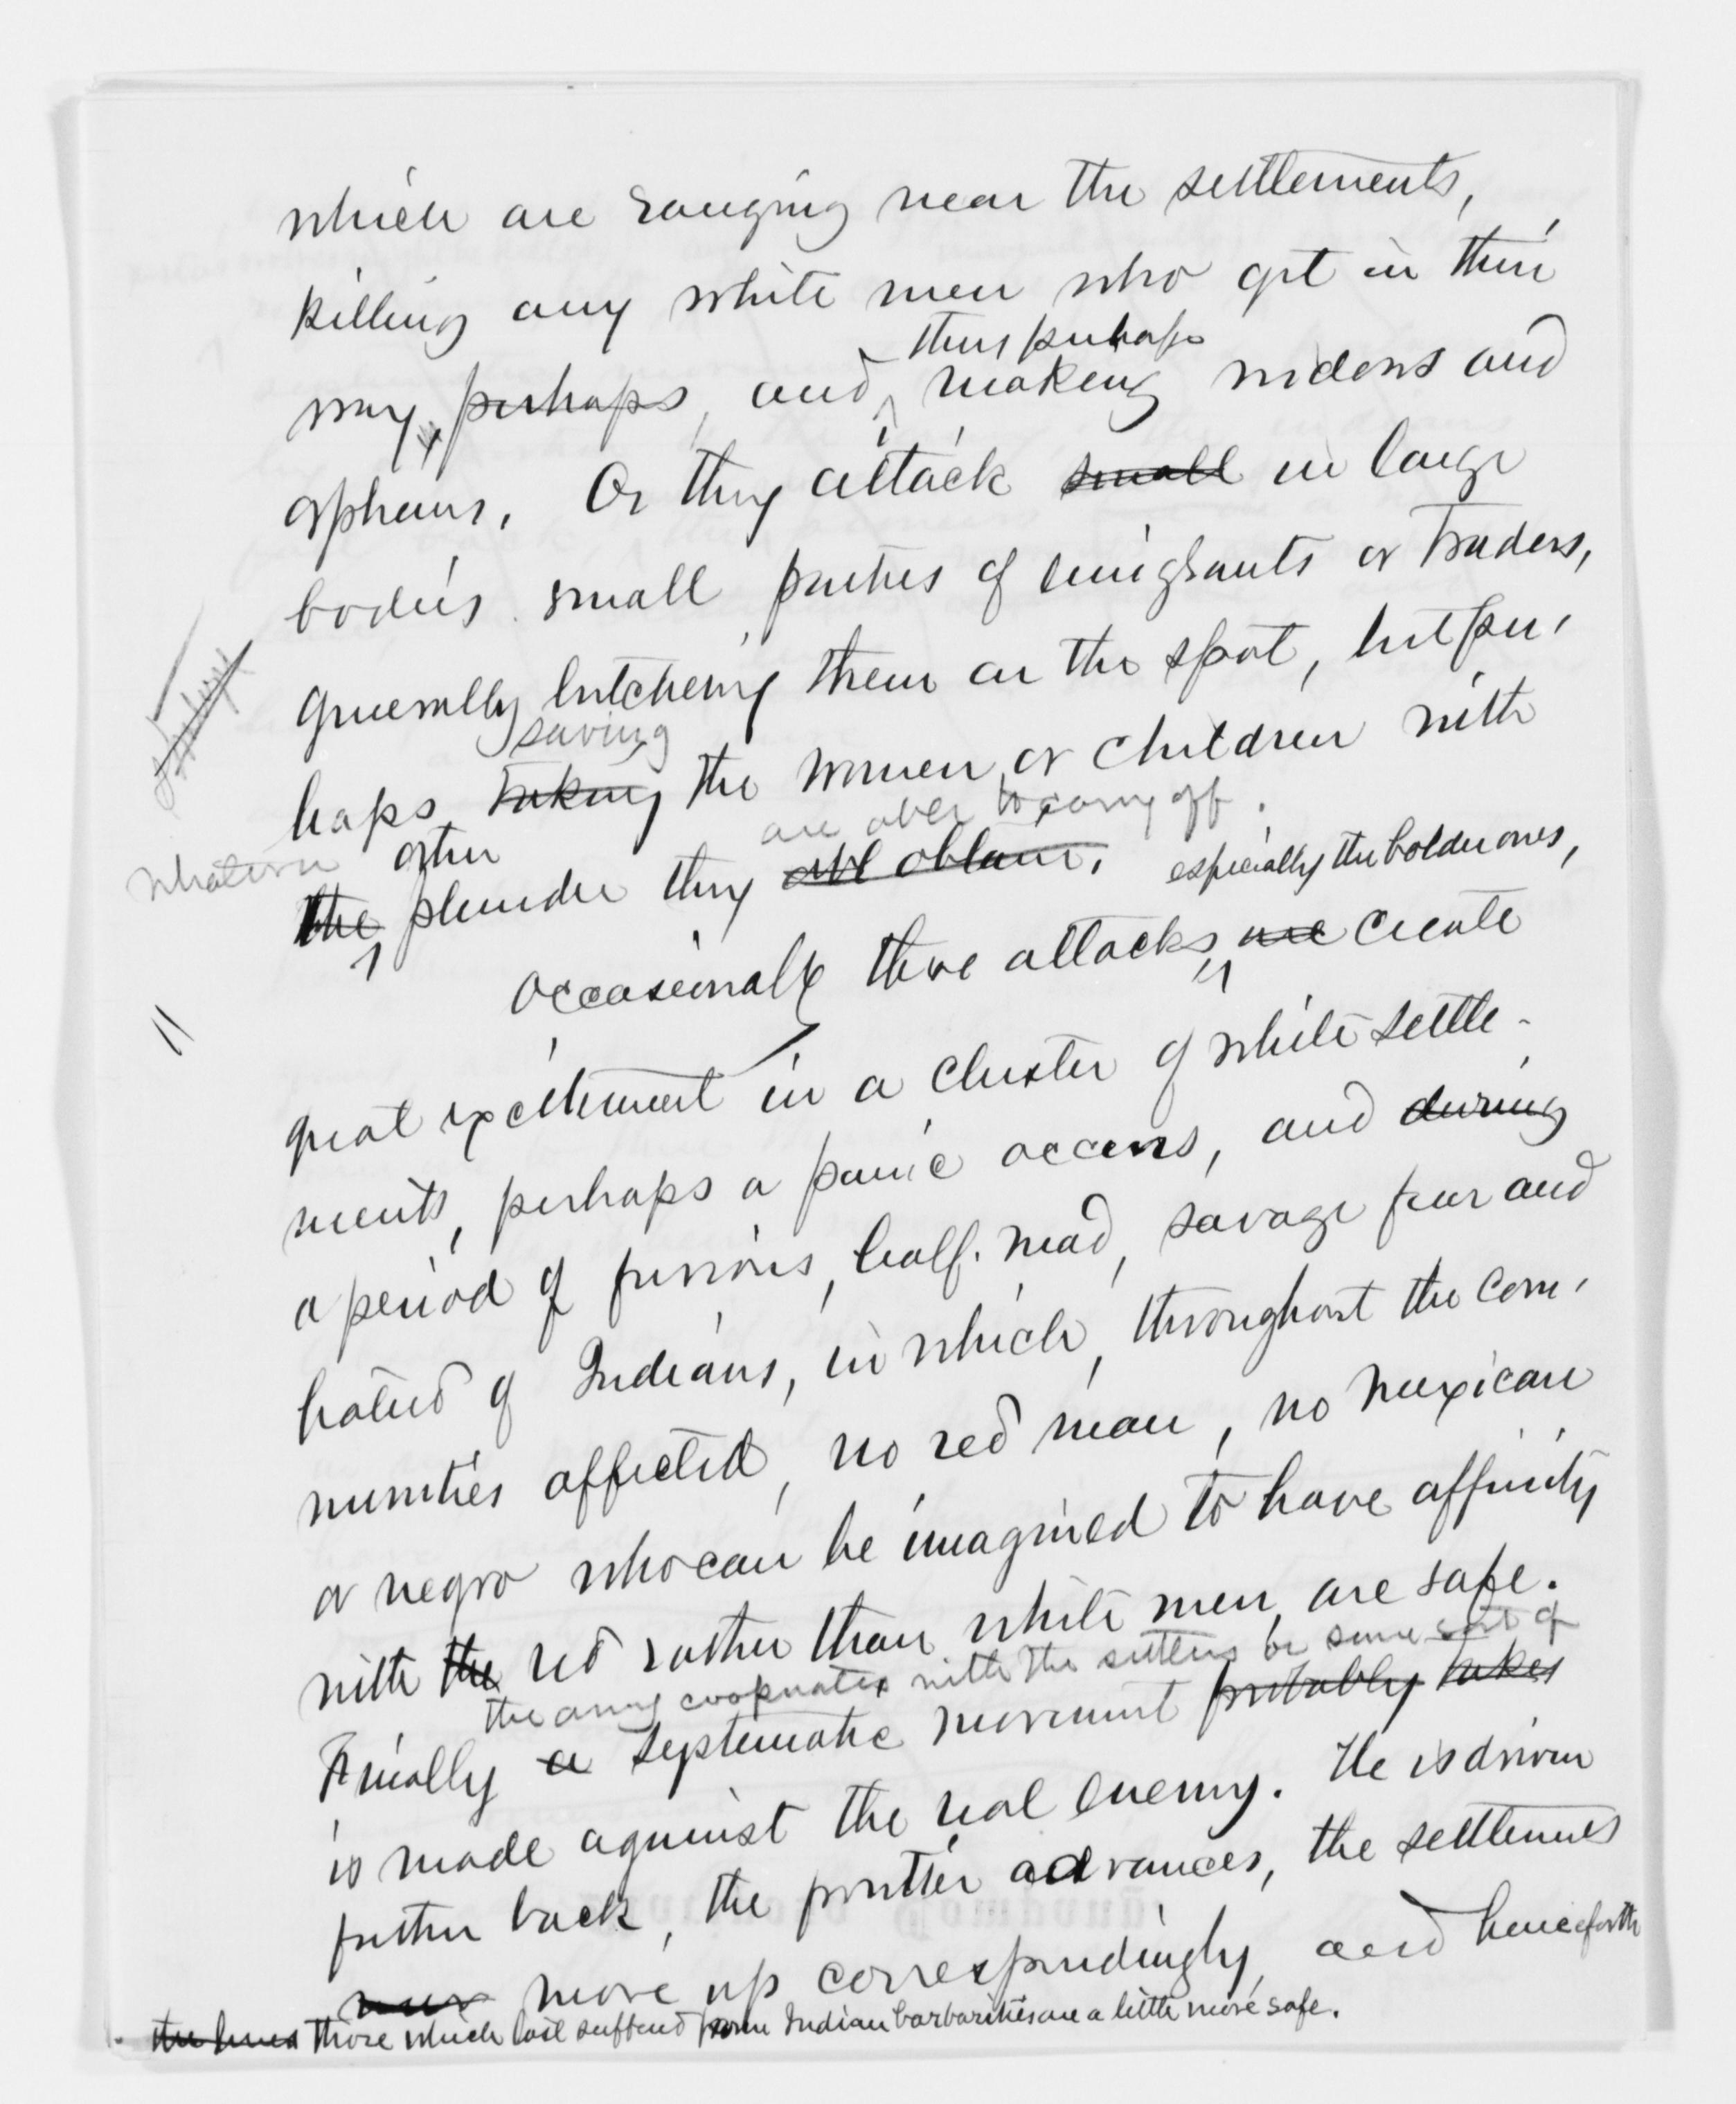 which are ranging near the settlements,
killing any white men who get in their
thus perhaps
way, perhaps, and making widows and
orphans. Or they attack small in large
bodies small parties of emigrants or traders,
generally butchering them on the spot, but per-
saving
haps taking the women or children with
are able to carry off.
whatever other
the plunder they obtain. especially the bolder ones,
Occasionally these attacks are create
great excitement in a cluster of white settle-
ments, perhaps a panic occurs, and during
a period of furious, half-mad, savage fear and
hatred of Indians, in which, throughout the com-
munities affected, no red man, no Mexican
or negro who can be imagined to have affinity
with the red rather than white men, are safe.
the army cooperates with the settlers or some sort of
Finally a systematic movement probably takes
is made against the real enemy. He is driven
further back, the frontier advances, the settlements
move up correspondingly, and henceforth
the lines those which last suffered from Indian barbarities are a little more safe.